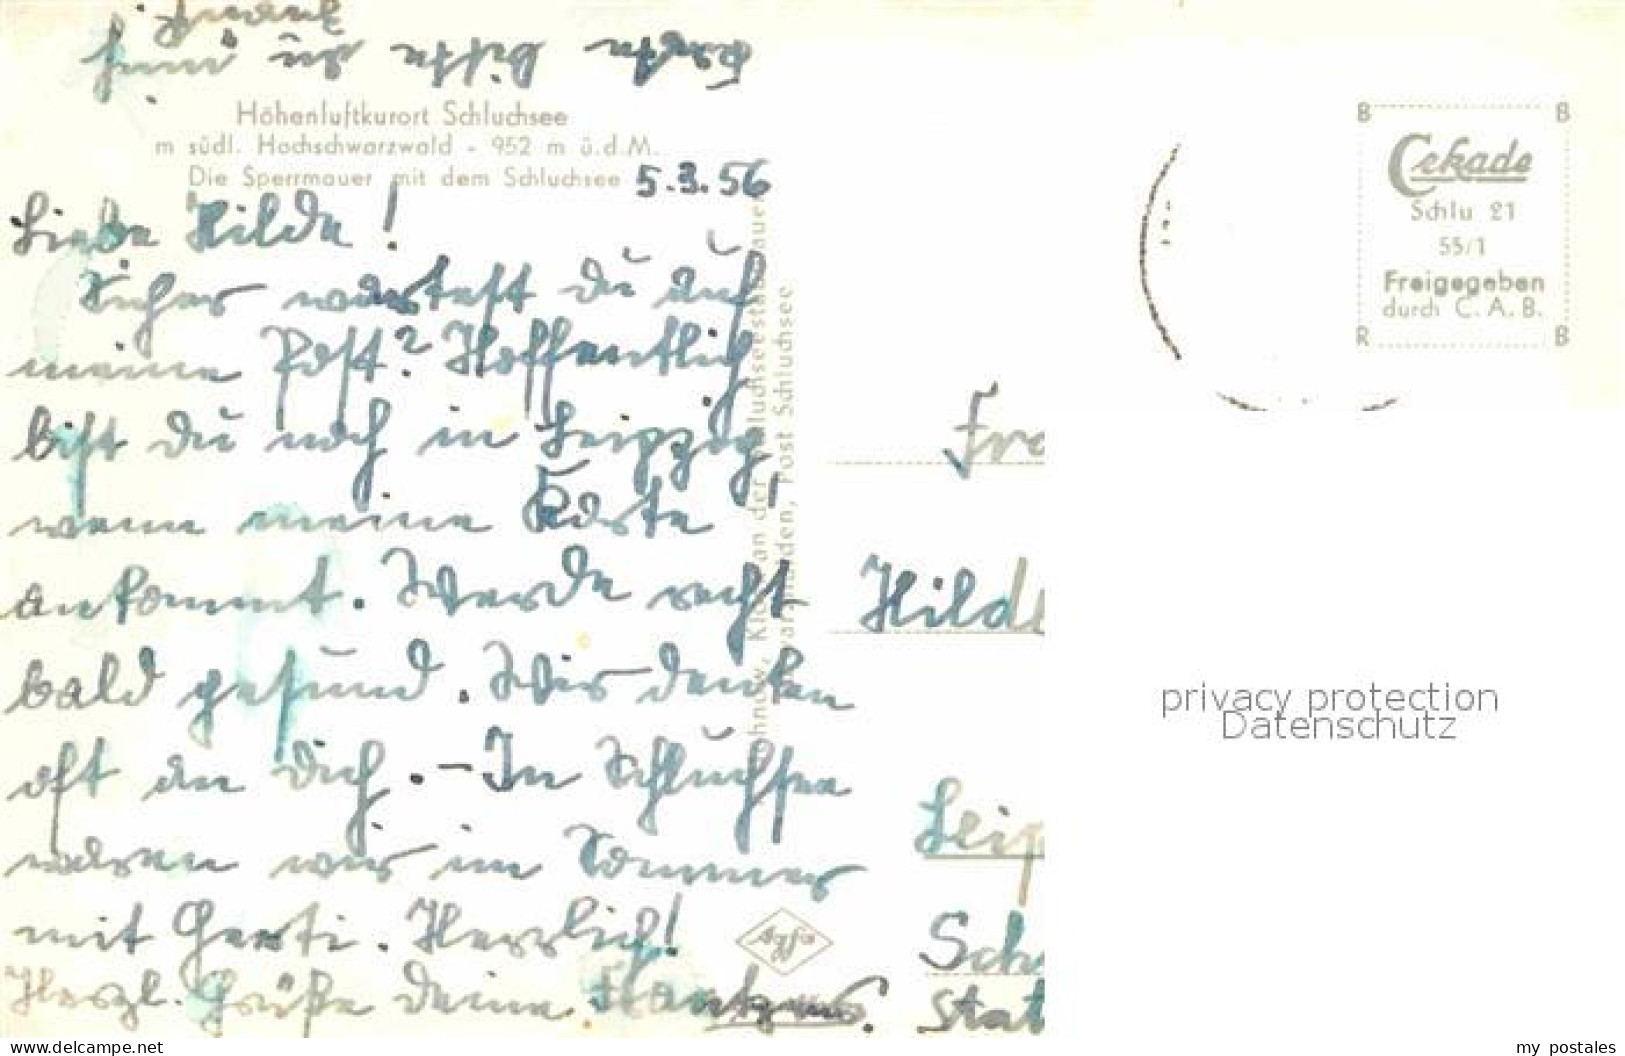 Höhenluftkurort Schluchsee
m südl. Hochschwarzwald - 952 m ü.d.M.
Die Sperrmauer mit dem Schluchsee
5.3.56
Liebe Hilde!
Sicher wartest du auf
meine Post? Hoffentlich
bist du noch in Leipzig,
wenn meine Karte
ankommt. Werde recht
bald gesund. Wir denken
oft an dich. - In Schluchsee
waren wir im Sommer
mit Gerti. Herzlich!
Herzl. Grüße deine
Karte bitte zu
an der
Post Schluchsee
Agfa
Fra
Hild
Leip
Sch
Stat
B B
Cekade
Schlu 21
55/1
Freigegeben
durch C.A.B.
R B
privacy protection
Datenschutz
www.delcampe.net
my_postales